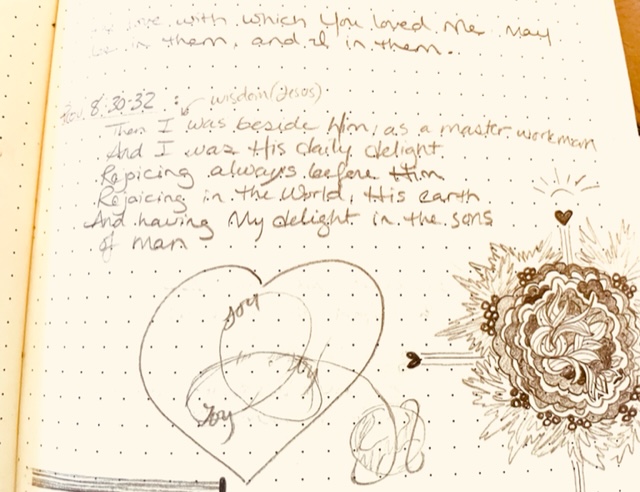 love with which You loved Me may
be in them, and I in them.
Prov. 8:30-32 : wisdom (Jesus)
Then I was beside Him, as a master workman
And I was His daily delight
Rejoicing always before Him
Rejoicing in the World, His earth
And having My delight in the sons
of man
Joy
Joy